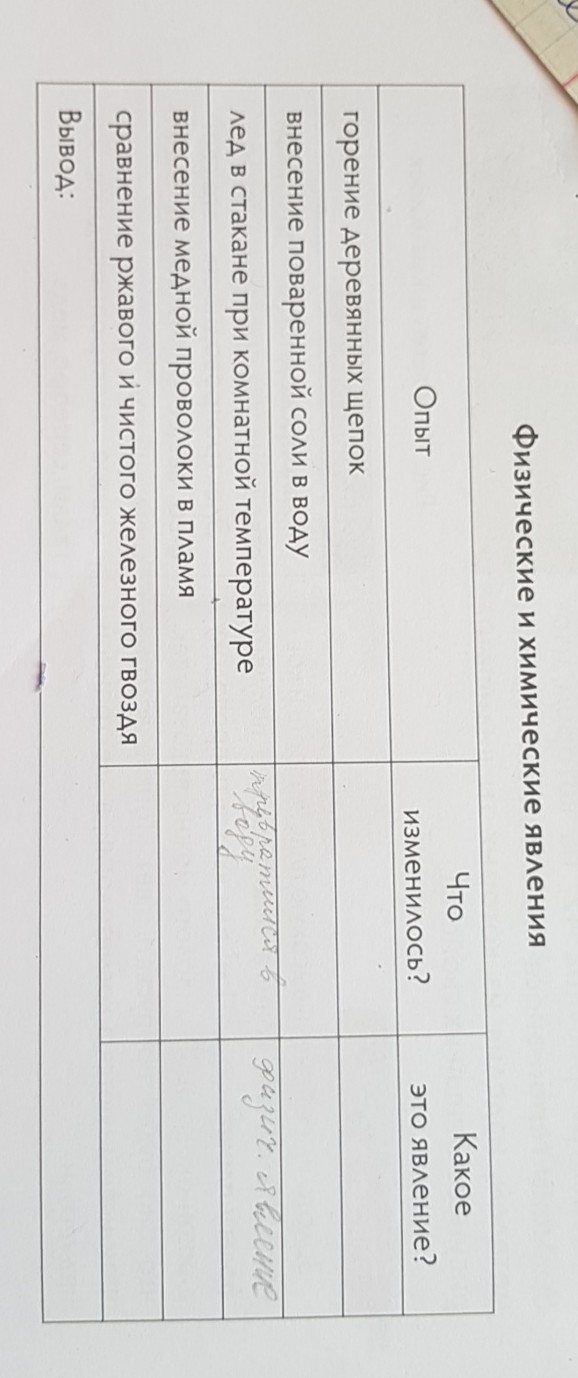 Физические и химические явления
Опыт
Что
изменилось?
Какое
это явление?
горение деревянных щепок
внесение поваренной соли в воду
лед в стакане при комнатной температуре
превратился в
воду
физич. явление
внесение медной проволоки в пламя
сравнение ржавого и чистого железного гвоздя
Вывод: